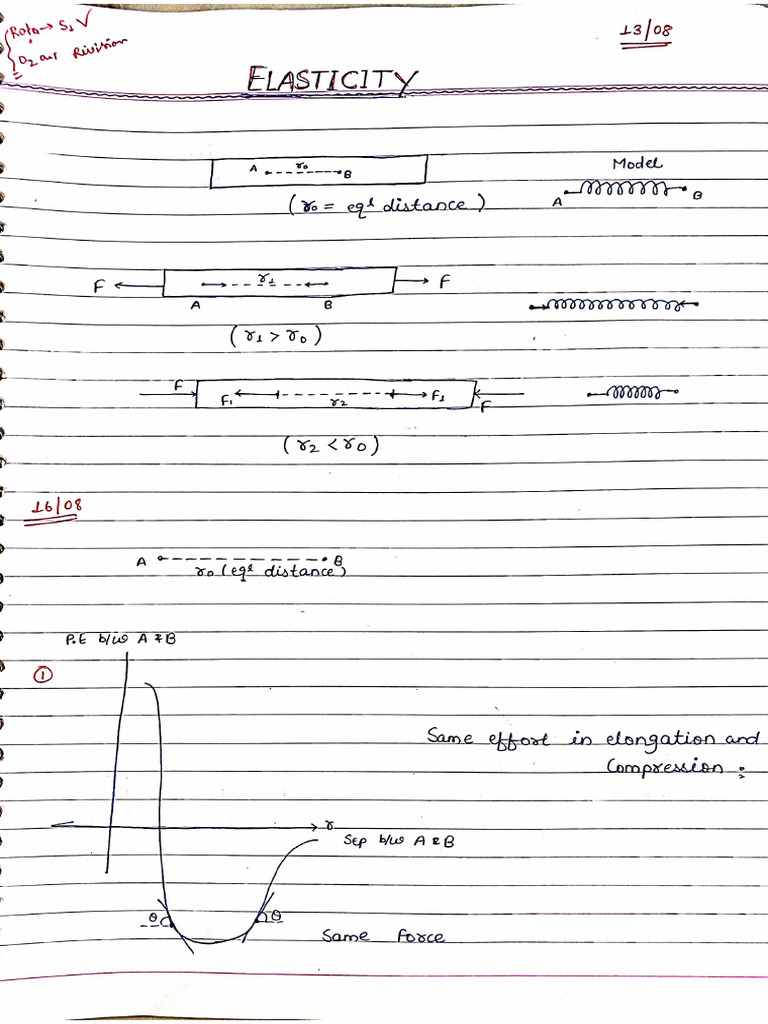 Rota→ S1 ✓
13/08
D2 our Rivision
ELASTICITY
A r0 B
Model
(r0 = eq^l distance)
A B
F r1 F
A B
(r1 > r0)
F F1 r2 F1 F
(r2 < r0)
16/08
A B
r0 (eq^l distance)
P.E b/w A & B
①
Same effort in elongation and
Compression :
r
Sep b/w A & B
θ θ
Same Force